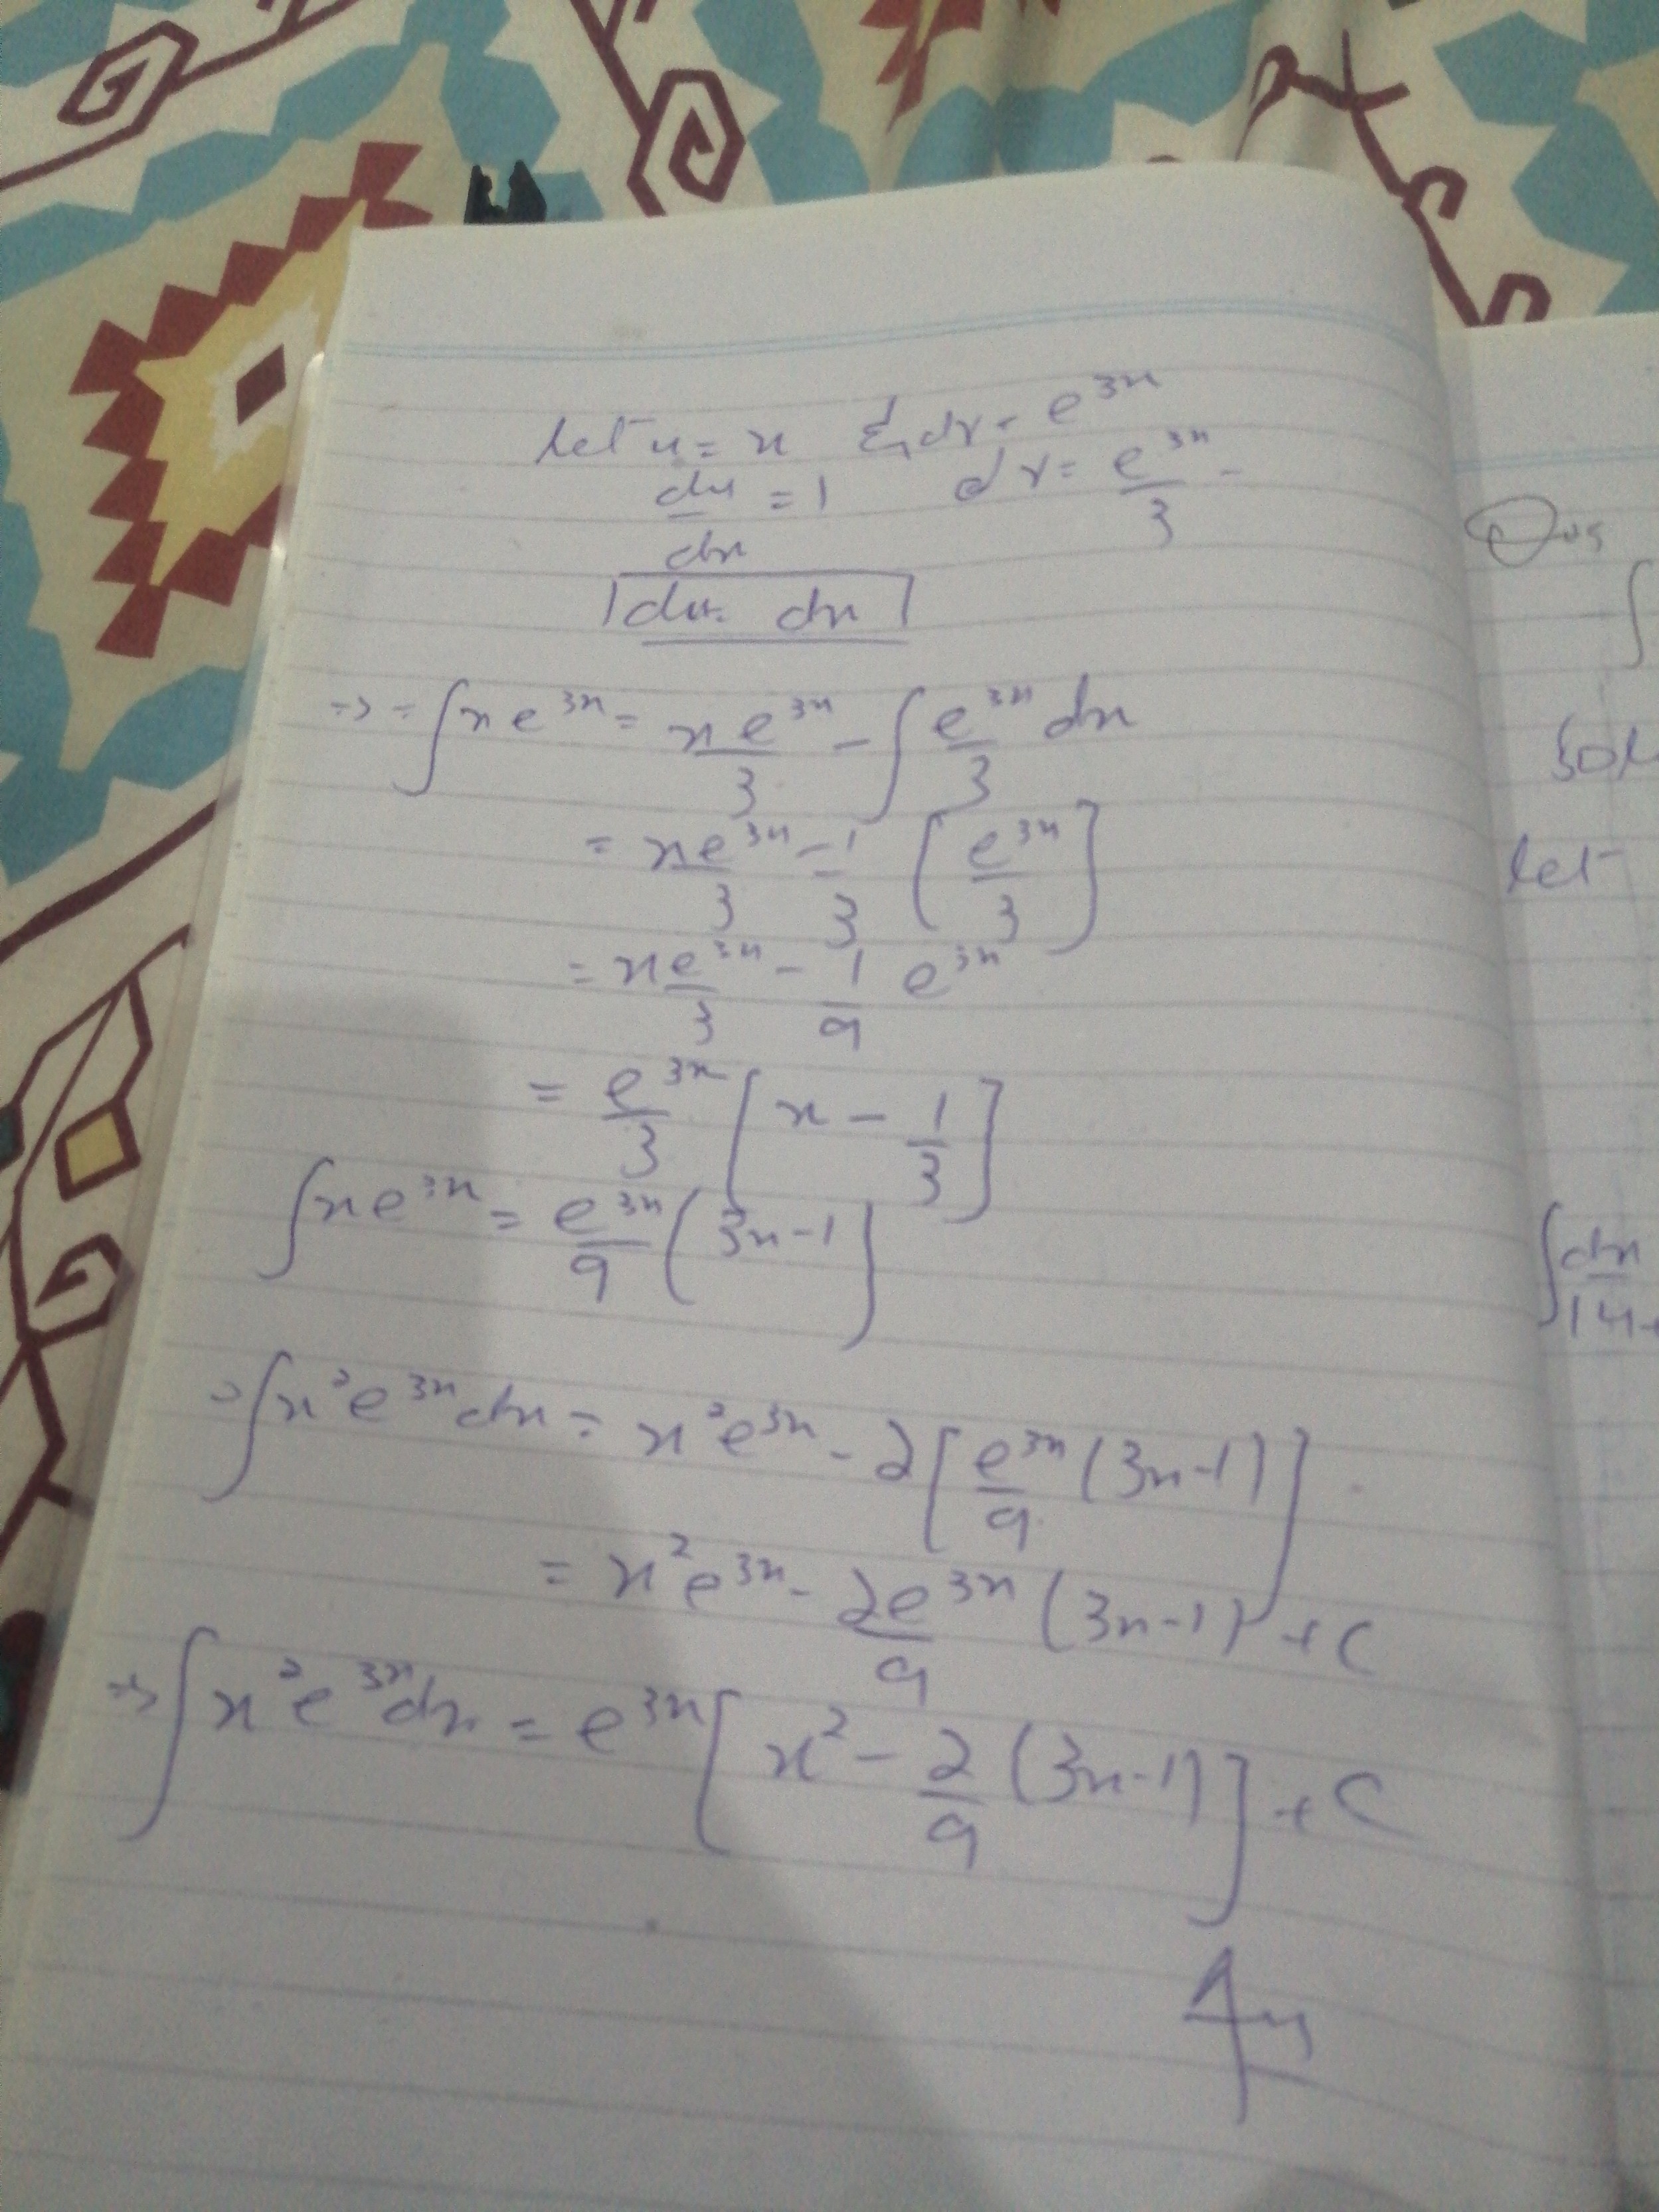 let u = x & dv = e^{3x}
du/dx = 1 dv = e^{3x}/3 -
du = dx
=> = ∫xe^{3x} = xe^{3x}/3 - ∫e^{3x}/3 dx
= xe^{3x}/3 - 1/3 [e^{3x}/3]
= xe^{3x}/3 - 1/9 e^{3x}
= e^{3x}/3 [x - 1/3]
∫xe^{3x} = e^{3x}/9 (3x-1)
∫x²e^{3x}dx = x²e^{3x} - 2[e^{3x}/9 (3x-1)]
= x²e^{3x} - 2e^{3x}/9 (3x-1) + C
=> ∫x²e^{3x}dx = e^{3x}[x² - 2/9 (3x-1)] + C
Ans
Ques
∫
Sol
let
∫dx/14+